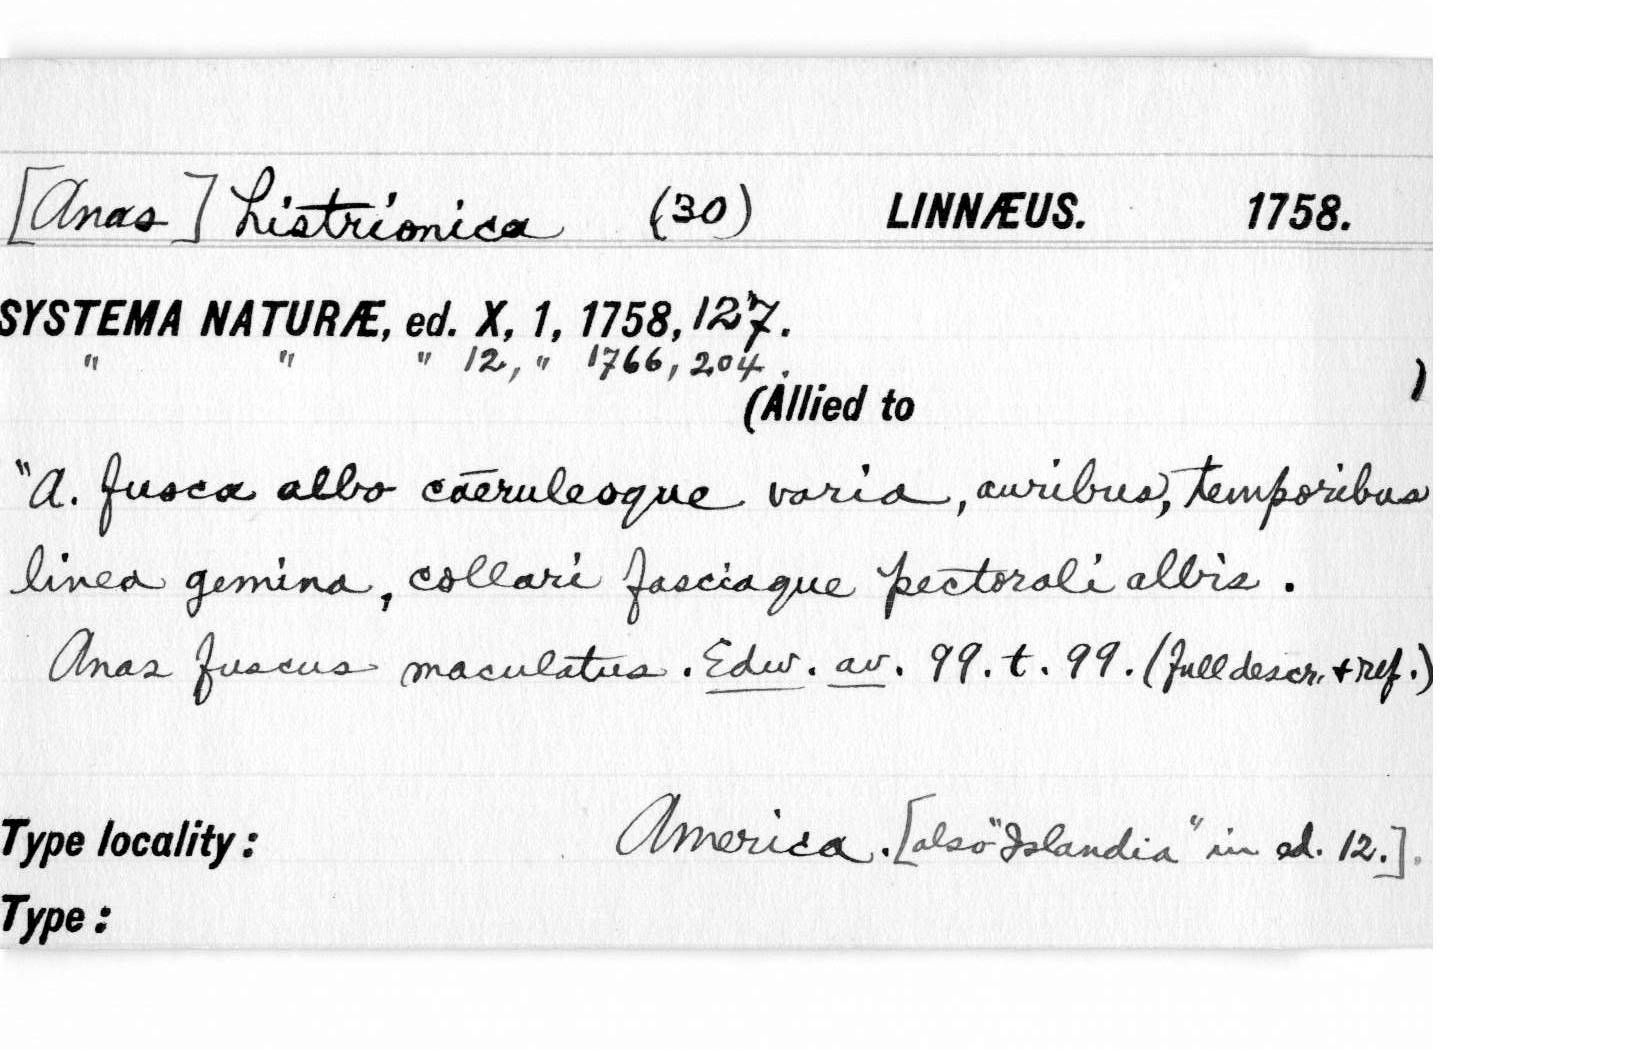 [Anas] histrionica (30) LINNÆUS. 1758.
SYSTEMA NATURÆ, ed. X, 1, 1758, 127.
" " " 12, " 1766, 204.
(Allied to )
"A. fusca albo cāeruleoque varia, auribus, temporibus
linea gemina, collari fasciaque pectorali albis.
Anas fuscus maculatus. Edw. av. 99. t. 99. (full descr. + ref.)
Type locality: America. [also "Islandia" in ed. 12.].
Type: